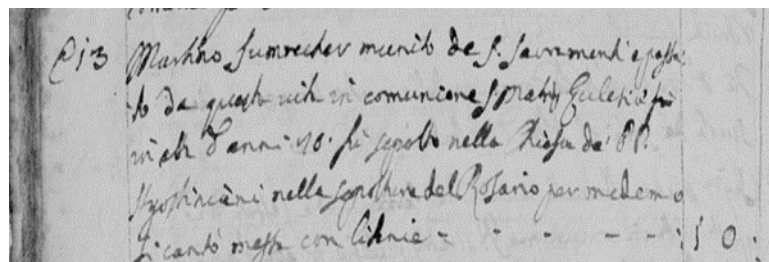 @ 13 Martino Sumrecher munito de S. Sacramenti e passa
to da questa vita in comunione S. Matris Ecclesiæ fu
in età d'anni 70. fù sepolto nella Chiesa de' PP.
Agostiniani nella sepoltura del Rosario per medemo
si cantò messa con litanie - - - - - : 1 0 .